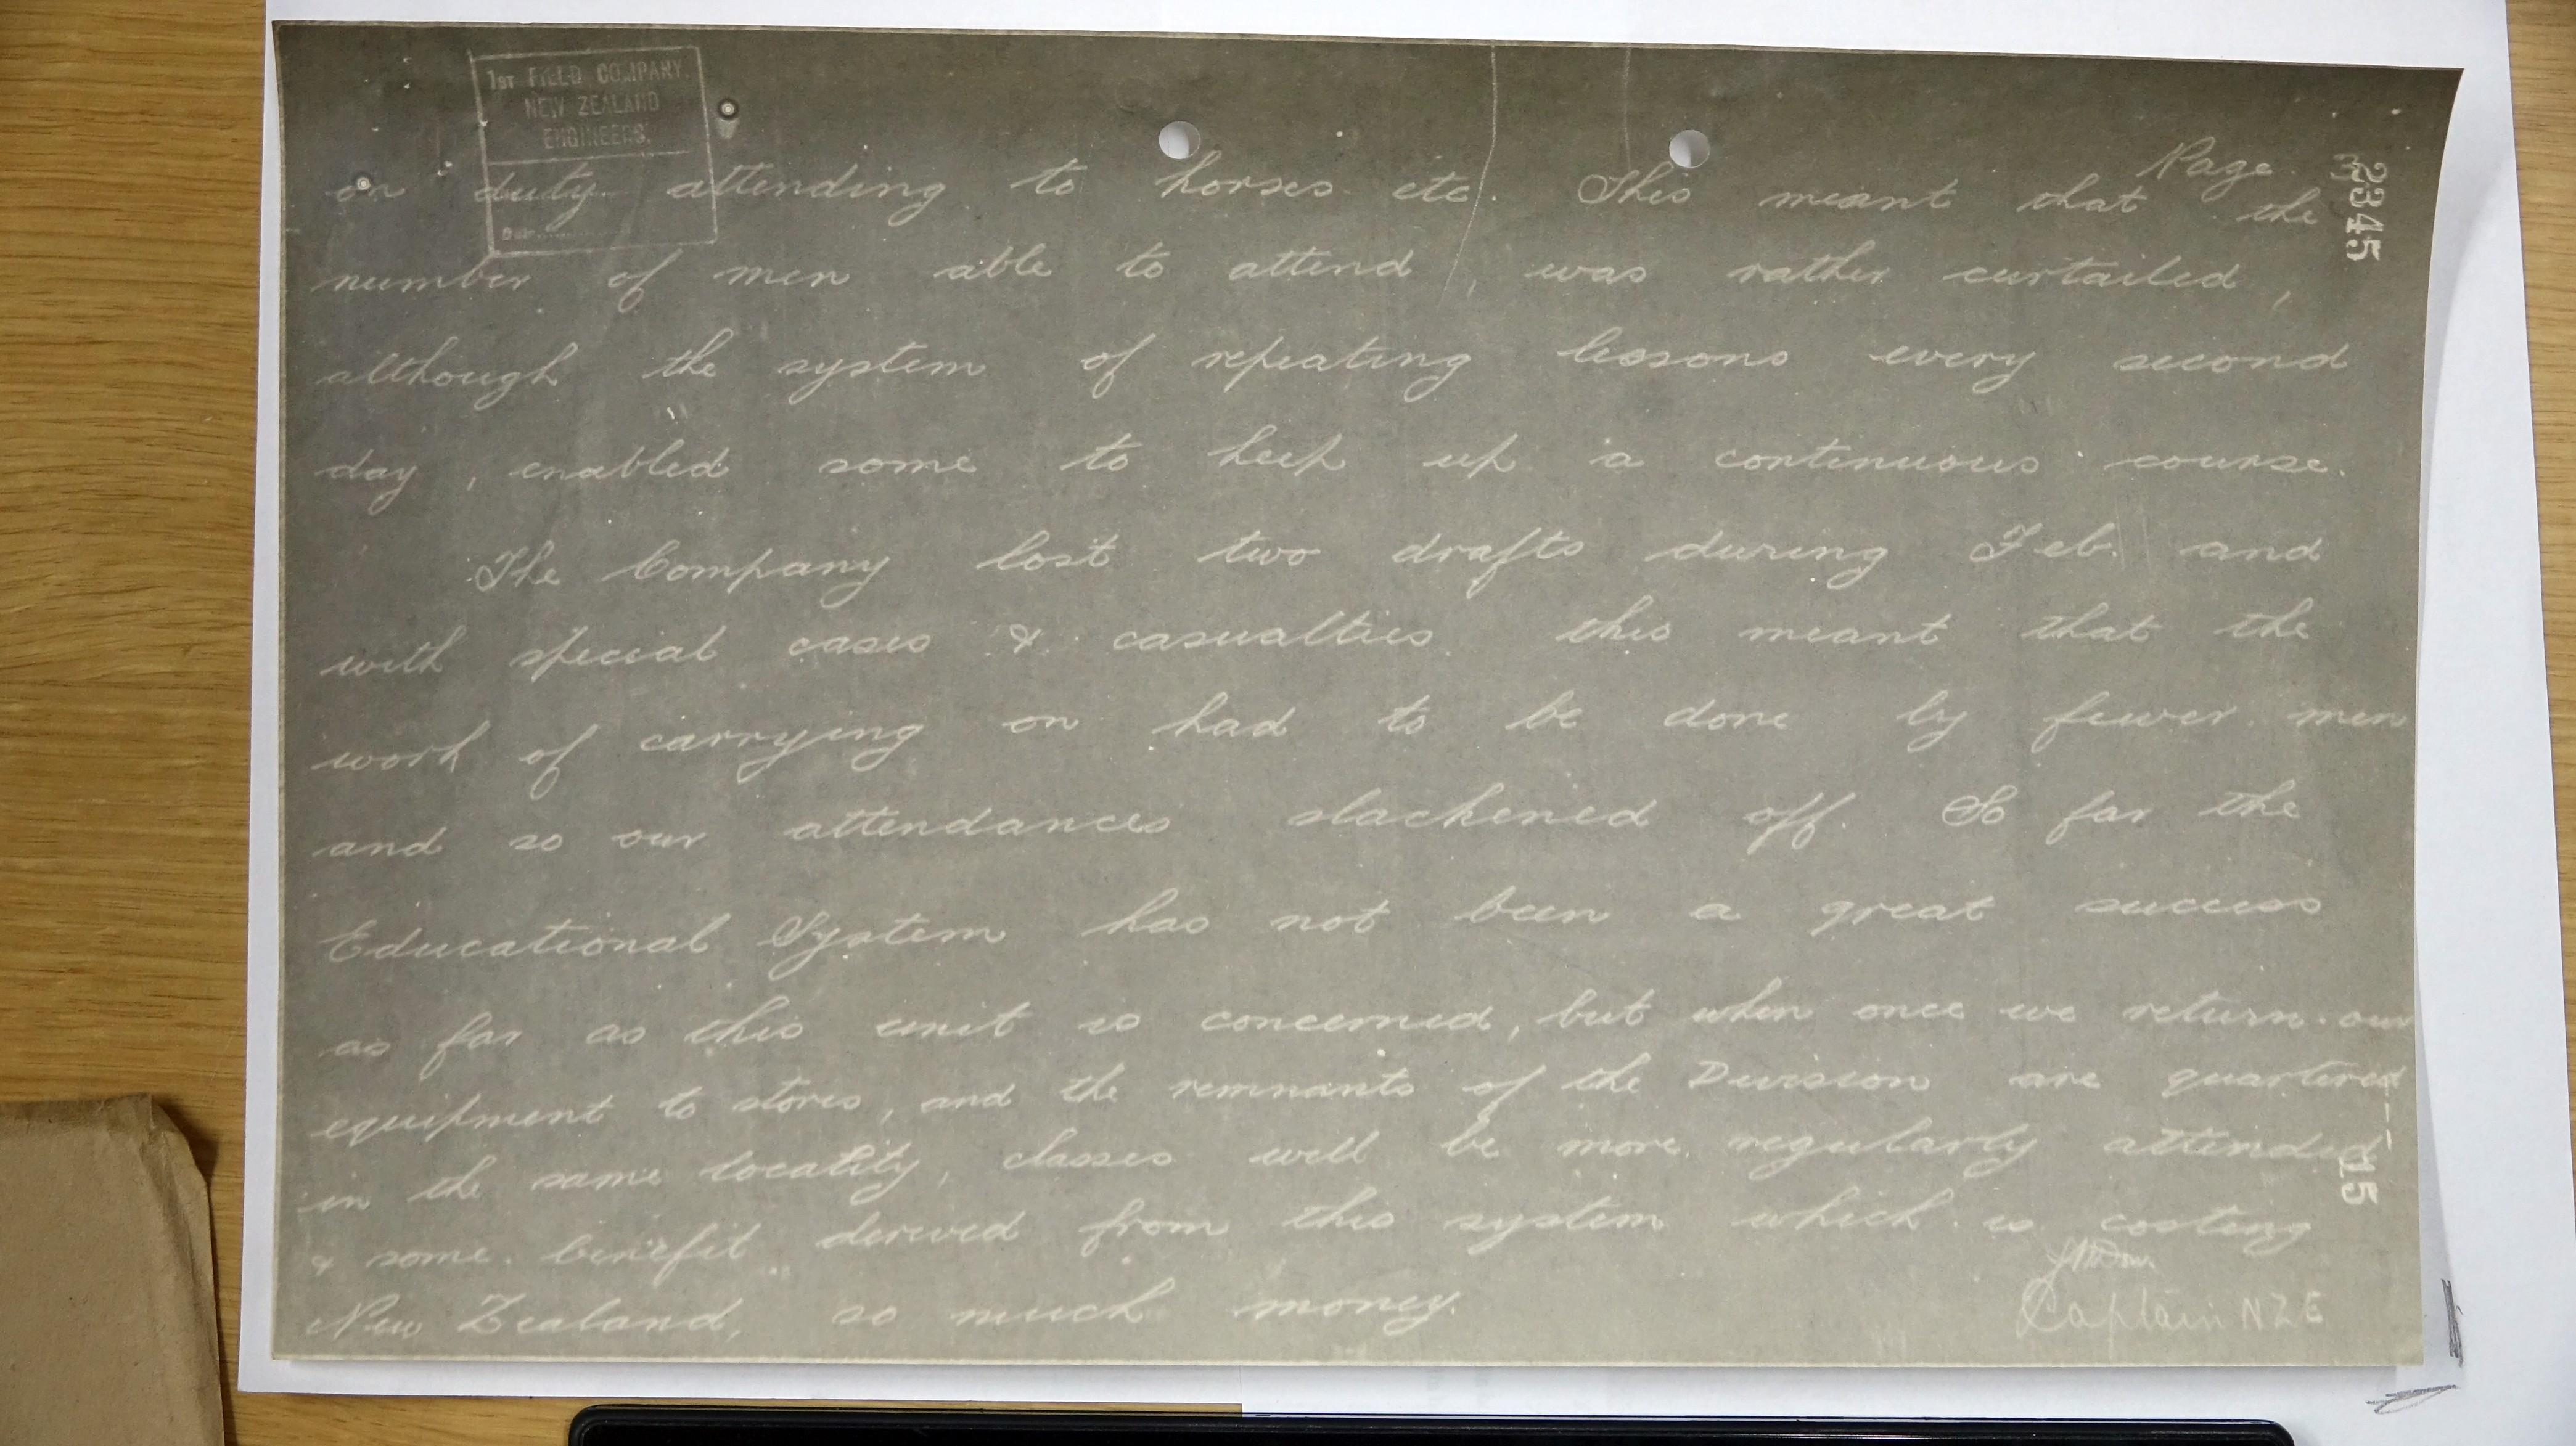 1ST FIELD COMPANY.
NEW ZEALAND
ENGINEERS.
Date
Page 3
2345
on duty attending to horses etc. This meant that the
number of men able to attend, was rather curtailed,
although the system of repeating lessons every second
day, enabled some to keep up a continuous course.
The Company lost two drafts during Feb. and
with special cases & casualties this meant that the
work of carrying on had to be done by fewer men
and so our attendances slackened off. So far the
Educational System has not been a great success
as far as this unit is concerned, but when once we return our
equipment to stores, and the remnants of the Division are quartered
in the same locality, classes will be more regularly attended
& some benefit derived from this system which is costing
New Zealand, so much money.
Captain NZE
15